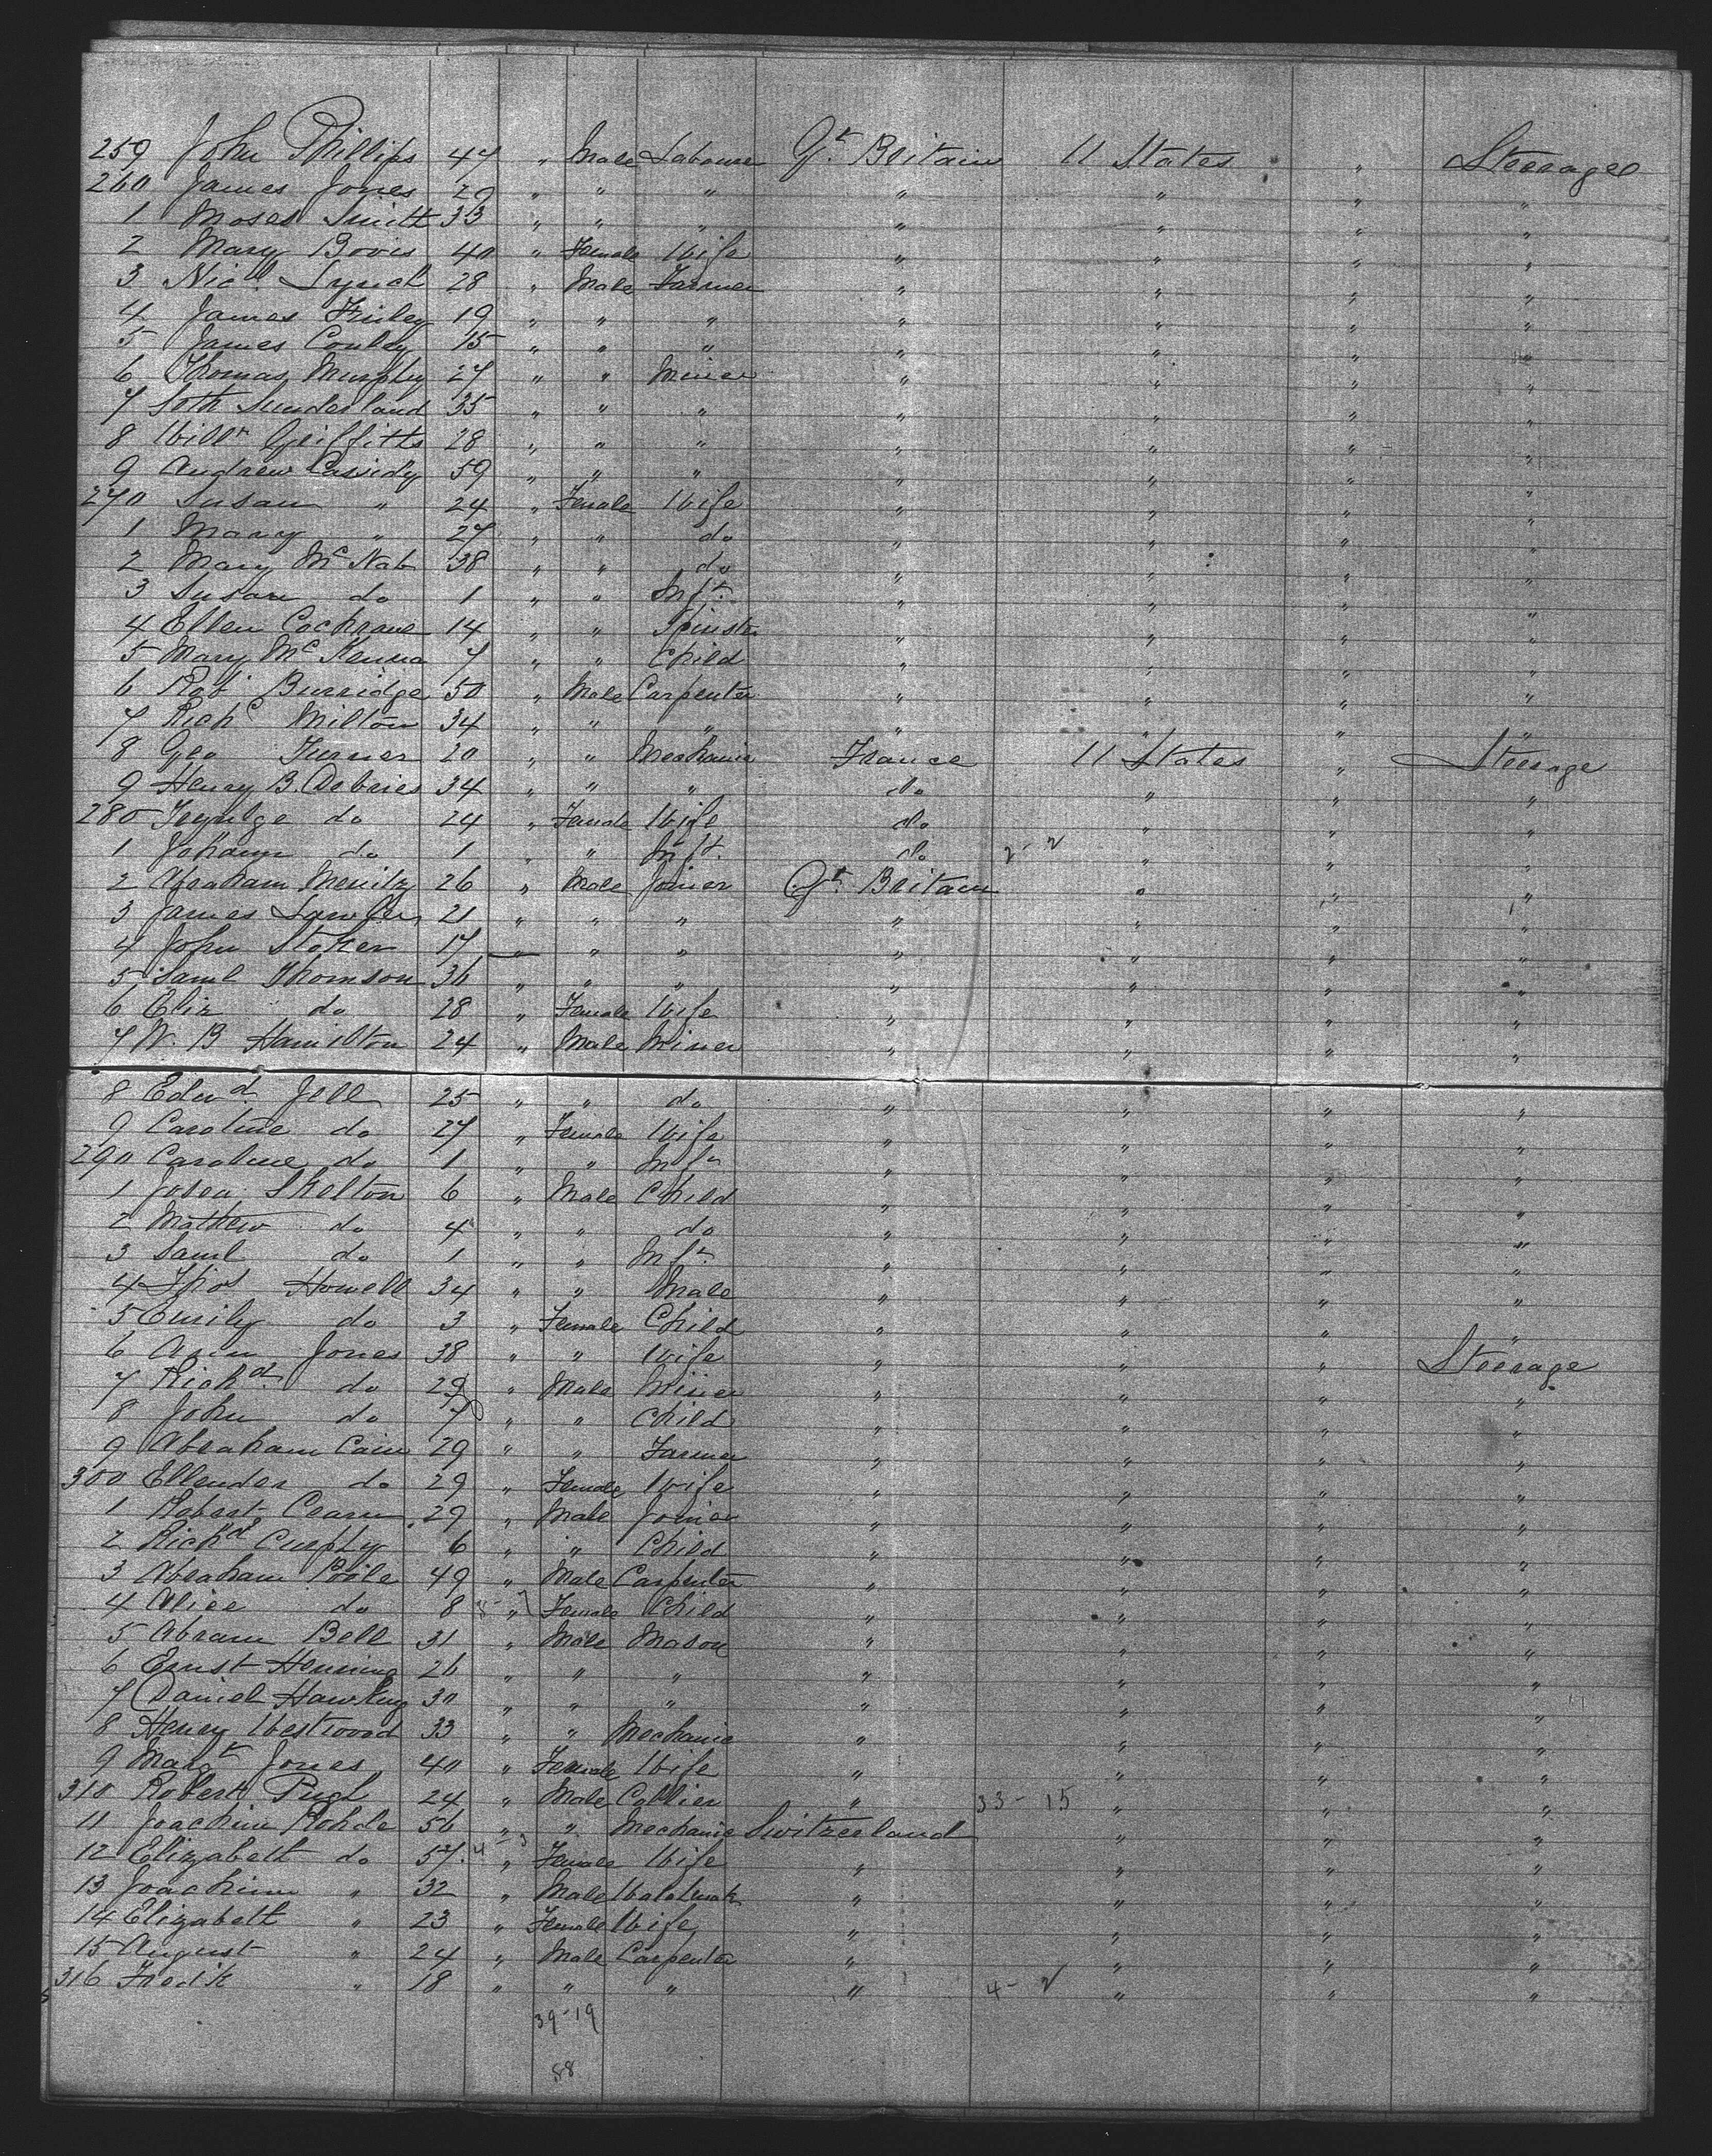 259 John Phillips 47 " Male Labourer Gt. Britain U States " Steerage
260 James Jones 29 " " " " " " "
1 Moses Smith 33 " " " " " " "
2 Mary Bovis 40 " Female Wife " " " "
3 Nichl. Lynch 28 " Male Farmer " " " "
4 James Finley 19 " " " " " " "
5 James Conley 15 " " " " " " "
6 Thomas Murphy 27 " " Miner " " " "
7 Seth Sunderland 35 " " " " " " "
8 Willm Griffiths 28 " " " " " " "
9 Andrew Cassidy 59 " " " " " " "
270 Susan " 24 " Female Wife " " " "
1 Mary " 27 " " do " " " "
2 Mary McNab 38 " " do " " " "
3 Susan do 1 " " Inft. " " " "
4 Ellen Cochrane 14 " " Spinstr " " " "
5 Mary McKenna 7 " " Child " " " "
6 Robt Burridge 50 " Male Carpenter " " " "
7 Richd Milton 34 " " " " " " "
8 Geo Turner 20 " " Mechanic France U States " Steerage
9 Henry B. 34 " " " do " " "
280 do 24 " Female Wife do " " "
1 Johann do 1 " " Inft. do 2-2 " " "
2 Abraham 26 " Male Joiner Gt. Britain " " "
3 James Lawler 21 " " " " " " "
4 John Stoker 17 " " " " " " "
5 Saml Thomson 36 " " " " " " "
6 Eliz do 28 " Female Wife " " " "
7 W. B Hamilton 24 " Male Miner " " " "
8 Edwd. Jell 25 " " do " " " "
9 Caroline do 27 " Female Wife " " " "
290 Caroline do 1 " " Infn " " " "
1 Skelton 6 " Male Child " " " "
2 Mathew do 4 " " do " " " "
3 Saml do 1 " " Infn " " " "
4 Thos Howell 34 " " Male " " " "
5 Emily do 3 " Female Child " " " "
6 Ann Jones 38 " " Wife " " " Steerage
7 Richd. do 29 " Male Miner " " " "
8 John do 7 " " Child " " " "
9 Abraham Cain 29 " " Farmer " " " "
300 Ellender do 29 " Female Wife " " " "
1 Robert 29 " Male Joiner " " " "
2 Richd Curphy 6 " " Child " " " "
3 Abraham Poole 49 " Male Carpenter " " " "
4 Alice do 8 " Female Child " " " "
5 Abram Bell 31 " Male Mason " " " "
6 Ernst Henning 26 " " " " " " "
7 Daniel Hawking 30 " " " " " " "
8 Henry Westwood 33 " " Mechanic " " " "
9 Margt Jones 40 " Female Wife " " " "
310 Robert Pugh 24 " Male Collier " 33-15 " " "
11 Joachim Rohde 56 " " Mechanic Switzerland " " "
12 Elizabeth do 57 4-3 " Female Wife " " " "
13 Joachim " 32 " Male " " " "
14 Elizabeth " 23 " Female Wife " " " "
15 August " 24 " Male Carpenter " " " "
316 Fredk " 18 " " " " 4-2 " " "
39-19
58